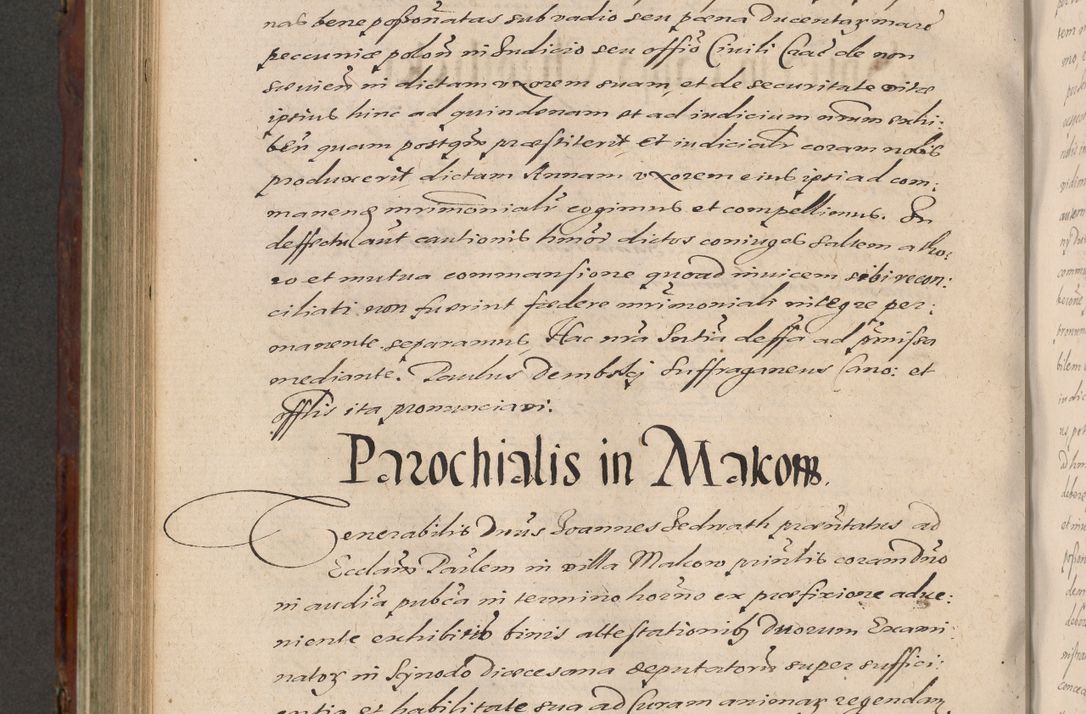 nas bene possonatas sub vadio seu pœna ducentaȝ marc
peccuniæ polon in Iudicio seu offio Civili Crac de non
sæuien in dictam uxorem suam et de securitate vitæ
ipsius hinc ad quindenam et ad iudicium nrum exhi:
ben quam postqm præstiterit et iudicialr coram nobis
produxerit dictam Annam uxorem eius ipsi ad com:
manenɖ mrimonialr cogimus et compellimus. In
deffectu aut cautionis hmoi dictos coniuges saltem a tho:
ro et mutua commansione quoad inuicem sibi recon:
ciliati non fuerint fœdere mrimoniali integre per:
manente separamus. Hac nra Sntia deffa ad pmissa
mediante. Paulus Dembskj Suffraganeus Cano: et
Offlis ita pronunciavi.
Parochialis in Makow.
Venerabilis Dnus Joannes Sedwath præntatus ad
Ecclam Parlem in villa Makow printis coram Dno
in audia pubca in termino horno ex præfixione adue:
niente exhibitis binis attestationibȝ Duorum Exami
natoȝ in Synodo diœcesana deputatoru super suffici:
entia et habilitate sua ad Curam animaȝ regendam